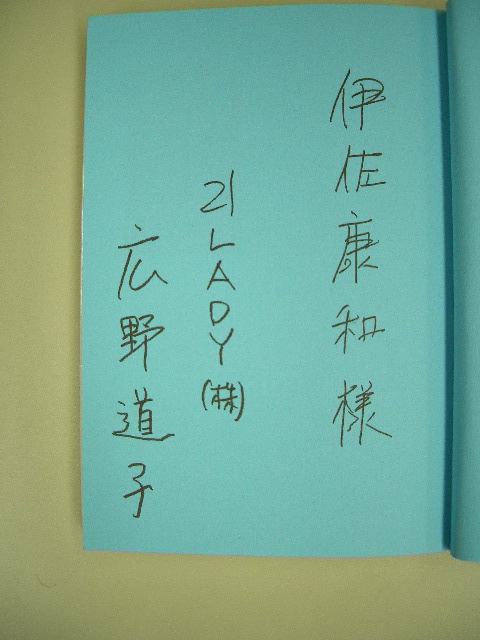 伊佐康和様
21LADY(株)
広野道子